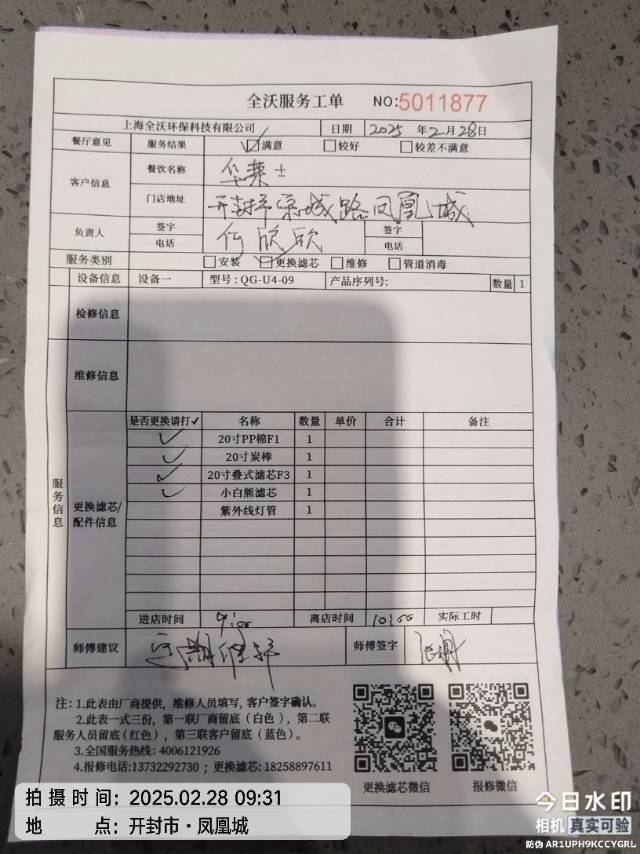 全沃服务工单 NO:5011877
上海全沃环保科技有限公司 日期 2025 年 2 月 28 日
餐厅意见 服务结果 ☑满意 □较好 □较差不满意
客户信息 餐饮名称 华莱士
门店地址 开封市宋城路凤凰城
负责人 签字 何欣欣 签字
电话 电话
服务类别 □安装 □更换滤芯 □维修 □管道消毒
设备信息 设备一 型号: QG-U4-09 产品序列号: 数量 1
检修信息
维修信息
服务信息
更换滤芯/配件信息
是否更换请打✓ 名称 数量 单价 合计 备注
✓ 20寸PP棉F1 1
✓ 20寸炭棒 1
✓ 20寸叠式滤芯F3 1
✓ 小白熊滤芯 1
紫外线灯管 1
进店时间 9:00 离店时间 10:00 实际工时
师傅建议 师傅签字
注: 1.此表由厂商提供，维修人员填写，客户签字确认。
2.此表一式三份，第一联厂商留底(白色)，第二联
服务人员留底(红色)，第三联客户留底(蓝色)。
3.全国服务热线: 4006121926
4.报修电话:13732292730；更换滤芯:18258897611
更换滤芯微信 报修微信
拍摄时间: 2025.02.28 09:31
地点: 开封市·凤凰城
今日水印
相机 真实可验
防伪 AR1UPH9KCCYGRL